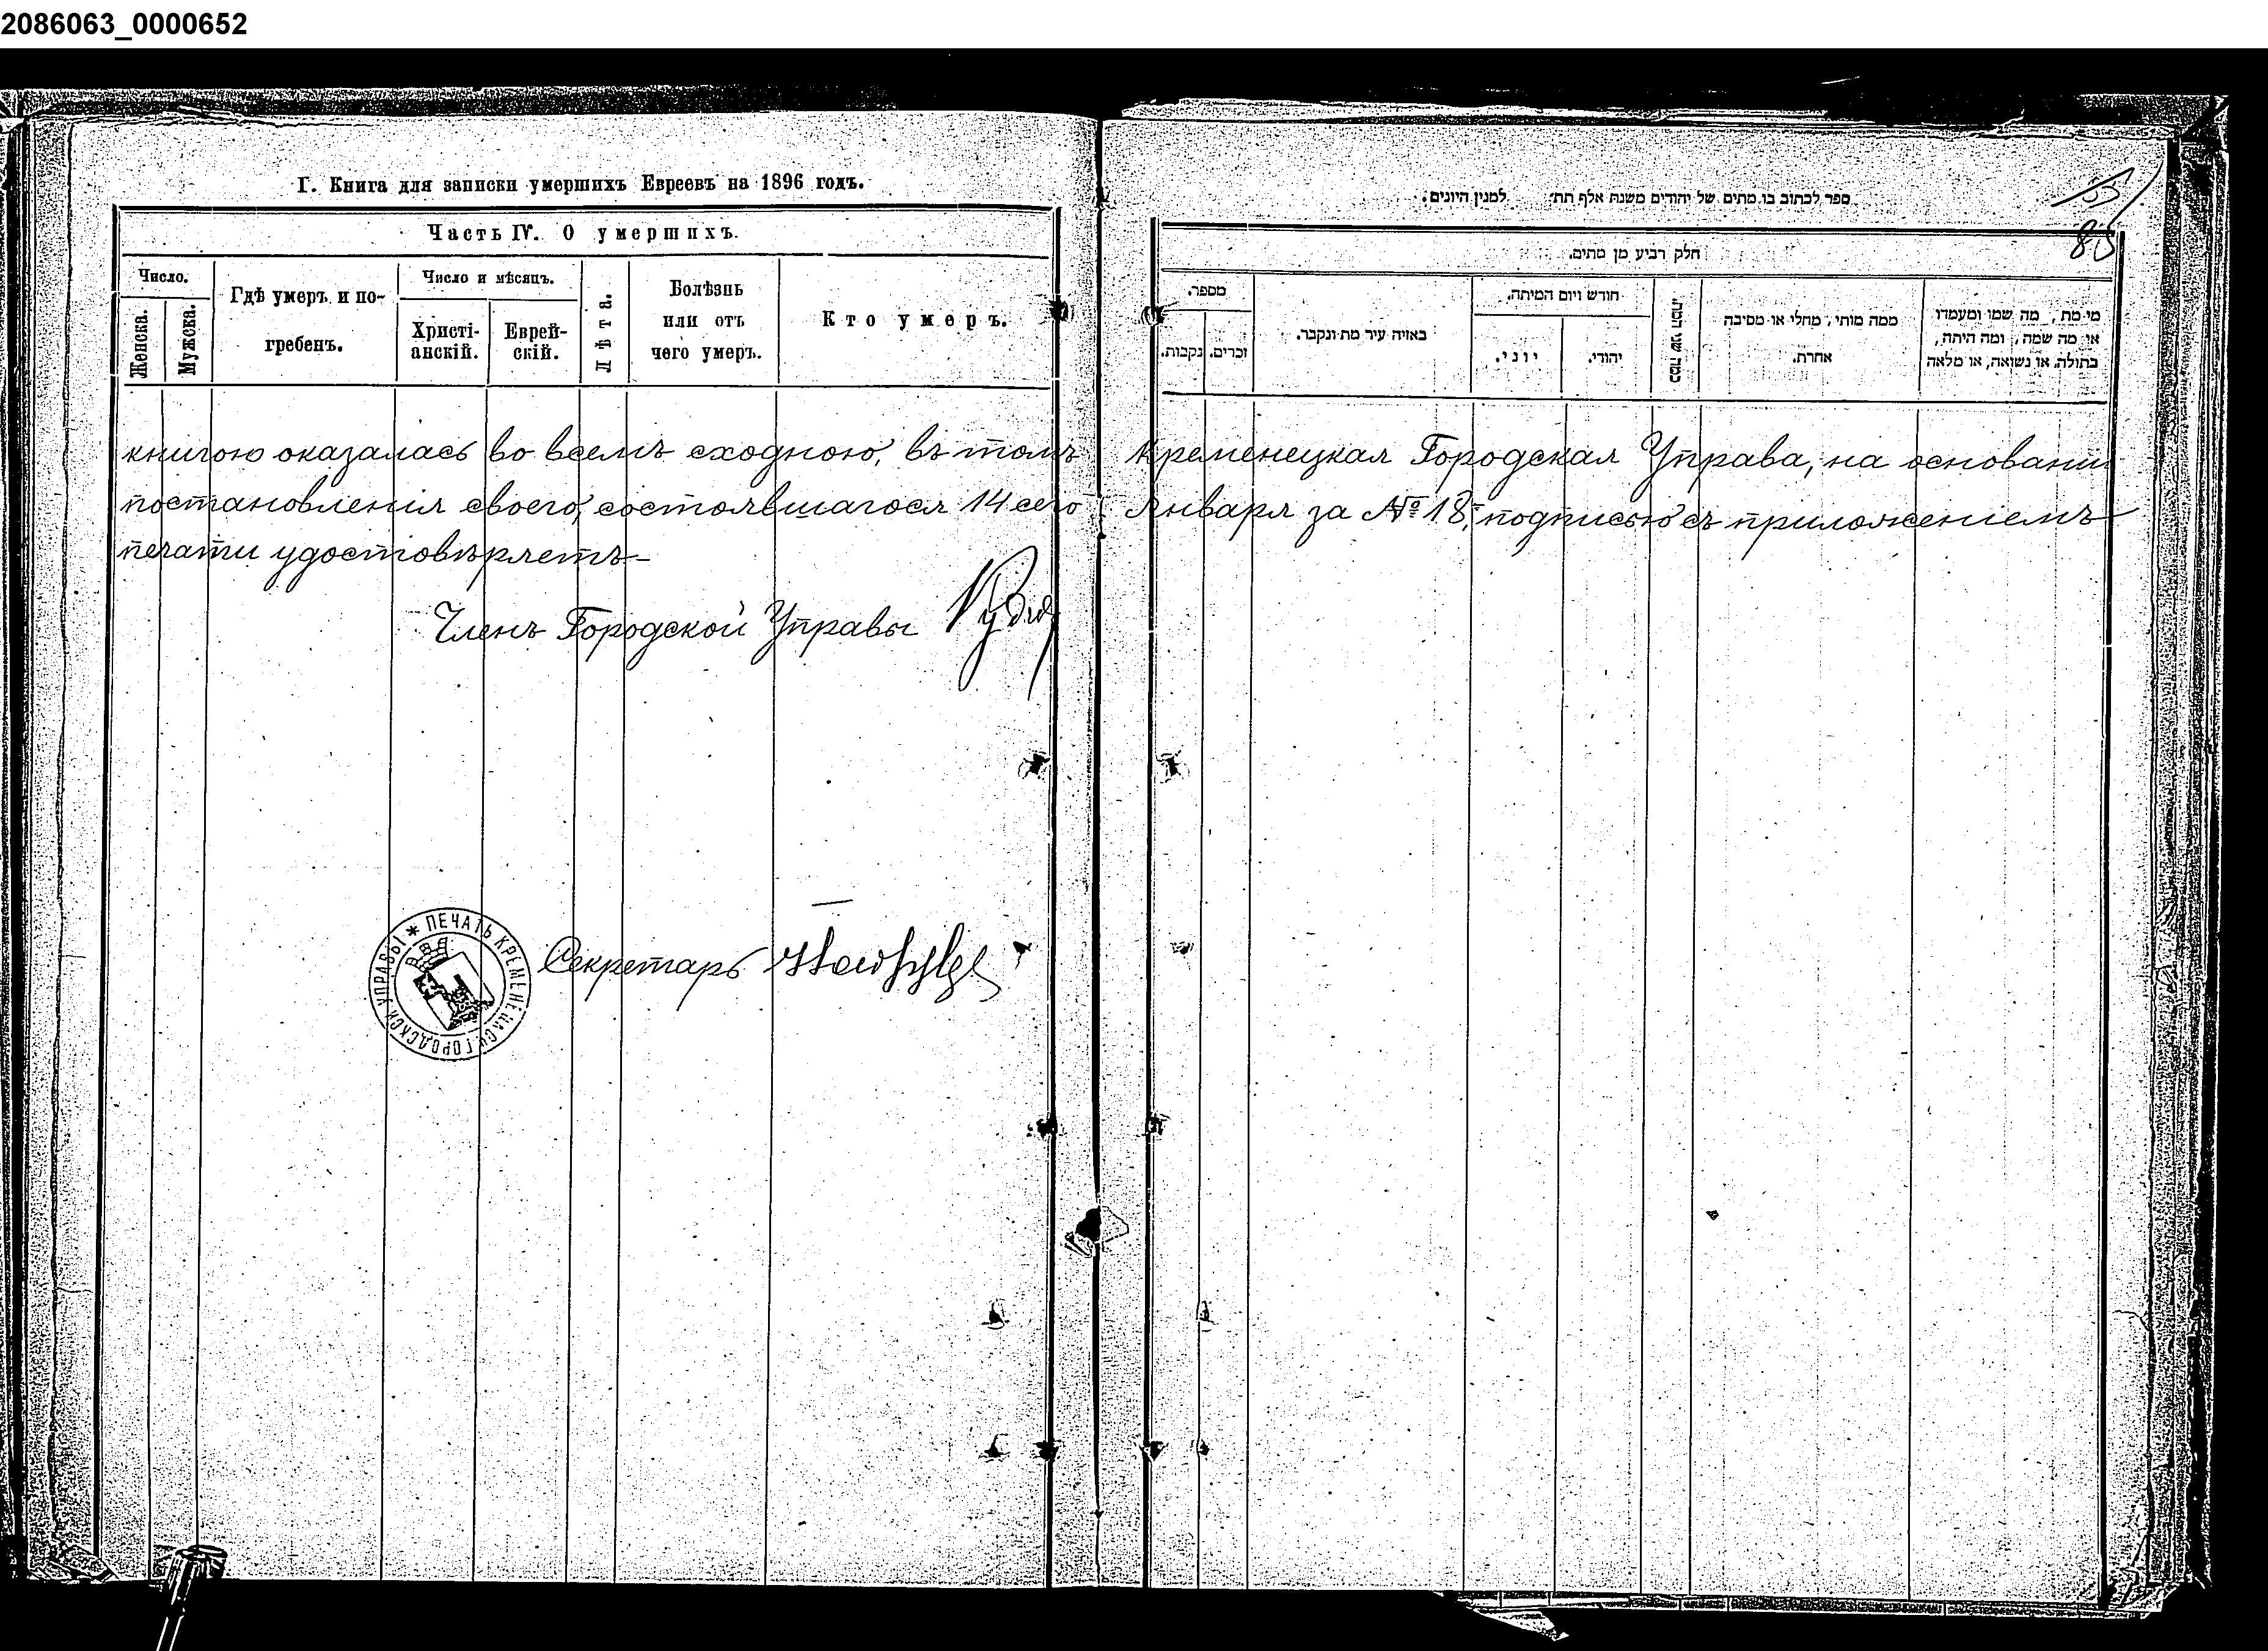 2086063_0000652
Г. Книга для записки умершихъ Евреевъ на 1896 годъ.
Часть IV. О умершихъ.
Число.
Женска.
Мужска.
Гдѣ умеръ и по-
гребенъ.
Число и мѣсяцъ.
Христі-
анскій.
Еврей-
скій.
Лѣта.
Болѣзнь
или отъ
чего умеръ.
Кто умеръ.
ספר לכתוב בו מתים של יהודים משנת אלף תת׳ למנין היונים.
85
חלק רביע מן מתים.
מספר.
נקבות.
זכרים.
באיזה עיר מת ונקבר.
חודש ויום המיתה.
יוני.
יהודי.
ממה מותי, מחלי או מסיבה
אחרת.
מי מת, מה שמו ומעמדו
או מה שמה, ומה היתה,
בתולה, או נשואה, או מלאה
книгою оказалась во всемъ сходною, въ томъ Кременецкая Городская Управа, на основании
постановленія своего, состоявшагося 14 сего Января за № 18, подписью съ приложеніемъ
печати удостовѣряетъ-
Членъ Городской Управы
ПЕЧАТЬ КРЕМЕНЕЦКОЙ ГОРОДСКОЙ УПРАВЫ
Секретарь